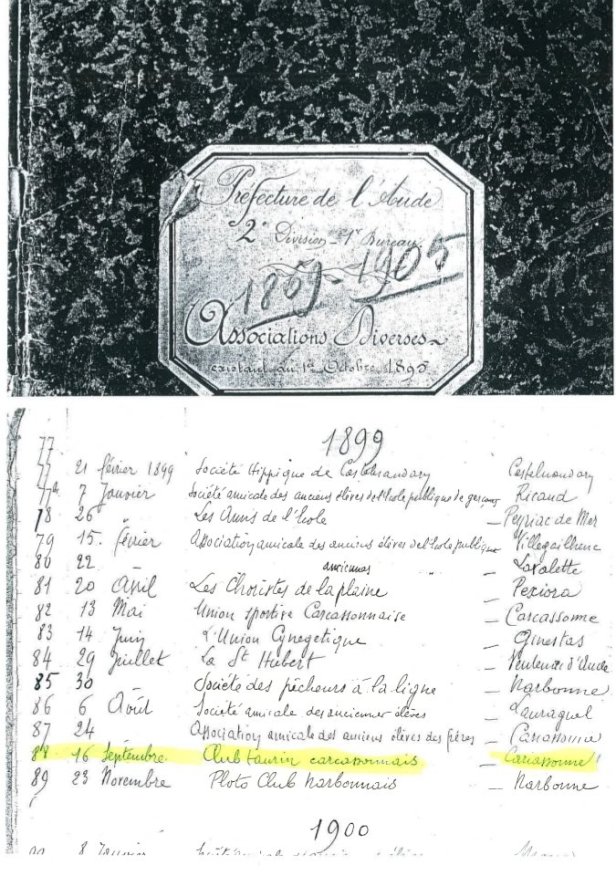 Préfecture de l'Aude
2e Division - 1er Bureau
1869 - 1905
Associations Diverses
existant au 1er Octobre 1895
1899
77
77 21 février 1899 Société Hippique de Castelnaudary Castelnaudary
77b 7 Janvier Société amicale des anciens élèves de l'école publique de garçons Ricaud
78 26 " Les Amis de l'Ecole _ Peyriac de Mer
79 15. février Association amicale des anciens élèves de l'école publique Villegailhenc
80 22 _ anciennes _ Lavalette
81 20 Avril Les Choristes de la plaine _ Pexiora
82 13 Mai Union sportive Carcassonnaise _ Carcassonne
83 14 Juin L'Union Cynégétique _ Ginestas
84 29 Juillet La St Hubert _ d'Aude
85 30 _ Société des pêcheurs à la ligne _ Narbonne
86 6 Août Société amicale des anciennes élèves _ Lauraguel
87 24 Association amicale des anciens élèves des frères _ Carcassonne
88 16 Septembre Club taurin carcassonnais _ Carcassonne
89 23 Novembre Photo Club Narbonnais _ Narbonne
1900
8 Janvier